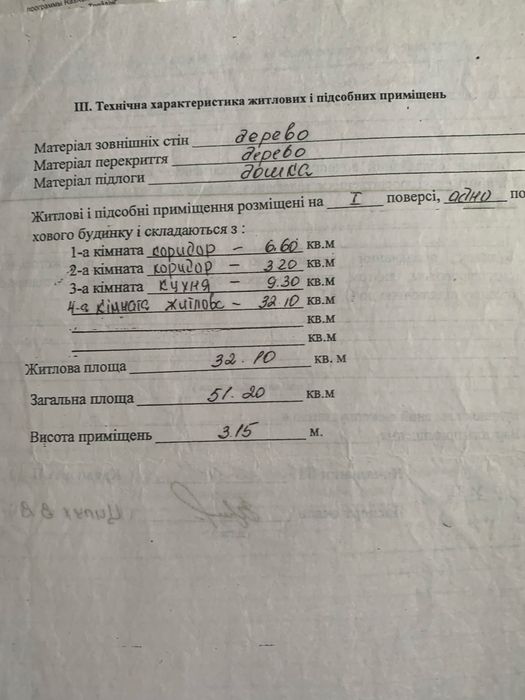 III. Технічна характеристика житлових і підсобних приміщень
Матеріал зовнішніх стін дерево
Матеріал перекриття дерево
Матеріал підлоги дошка
Житлові і підсобні приміщення розміщені на I поверсі, одно по
хового будинку і складаються з :
1-а кімната коридор – 6.60 кв.м
2-а кімната коридор – 3.20 кв.м
3-а кімната кухня – 9.30 кв.м
4-а кімната житлова – 32 10 кв.м
кв.м
кв.м
Житлова площа 32.10 кв. м
Загальна площа 51.20 кв.м
Висота приміщень 3.15 м.